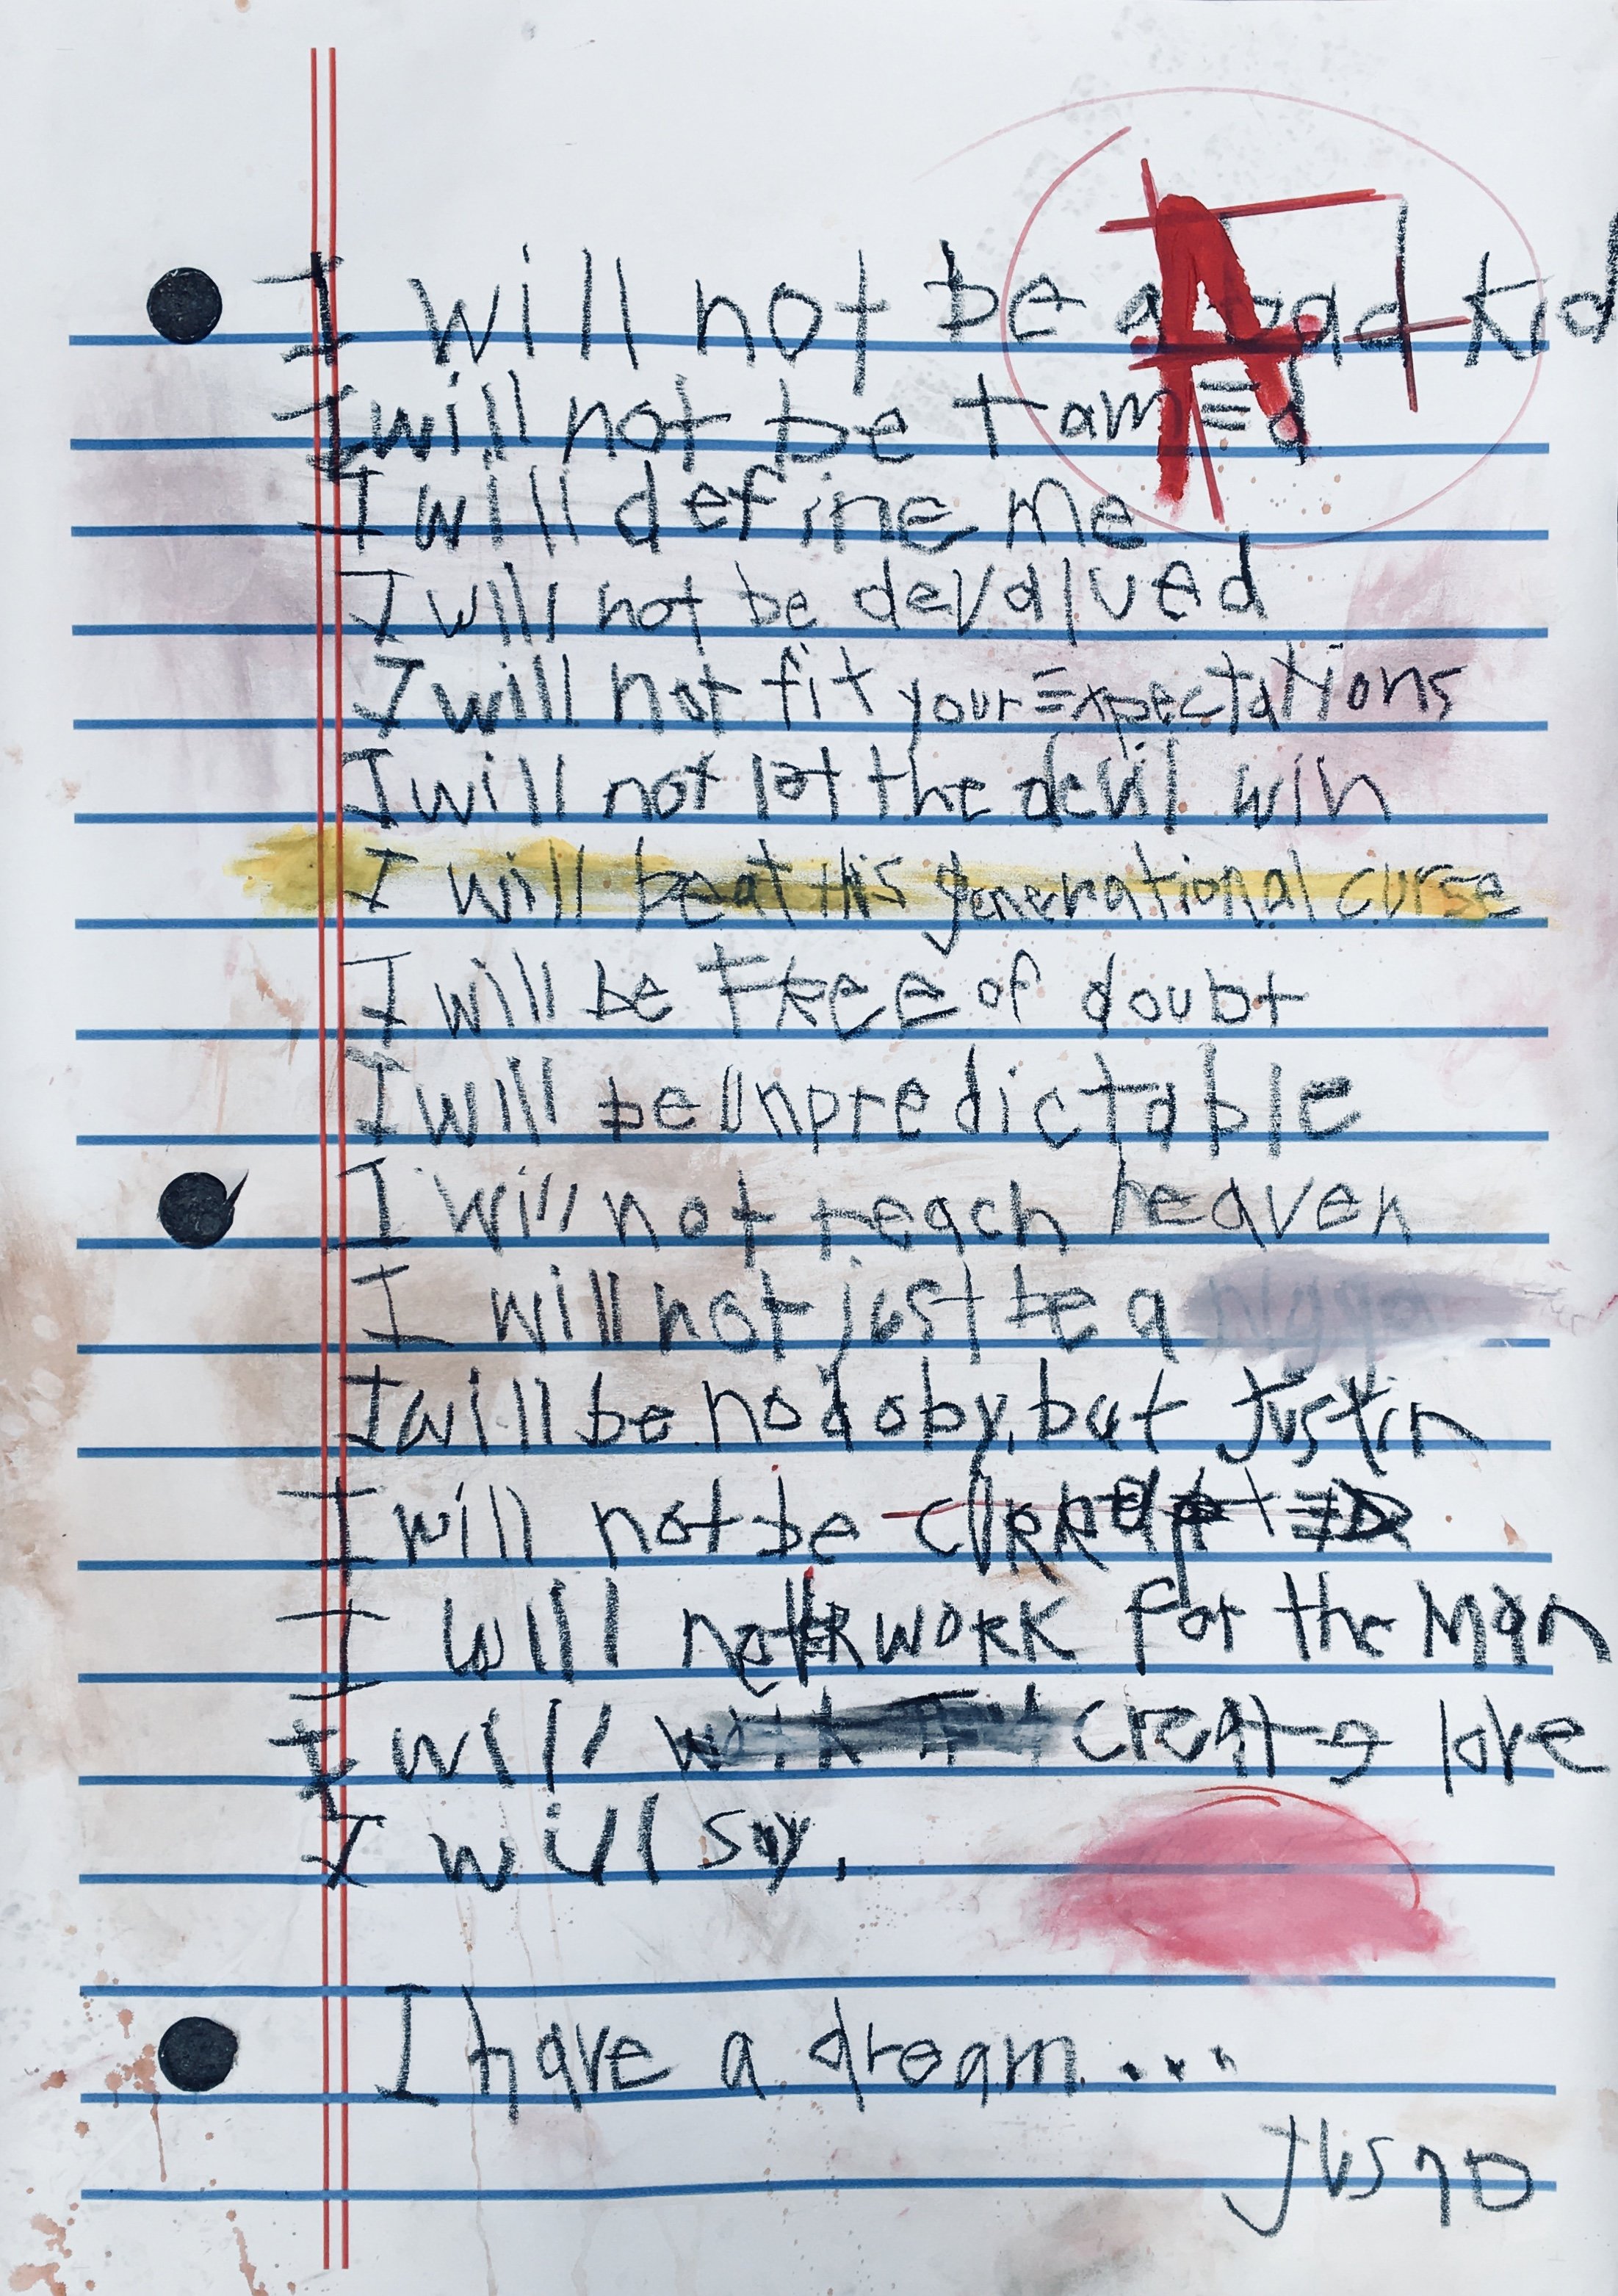 A+
I will not be a bad kid
I will not be tamEd
I will define me
I will not be devalued
I will not fit your Expectations
I will not let the devil win
I will beat this generational curse
I will be FREE of doubt
I will be Unpredictable
I will not reach heaven
I will not just be a
I will be nodoby, but Justin
I will not be
I will work for the Man
I will create love
I will say,
I have a dream...